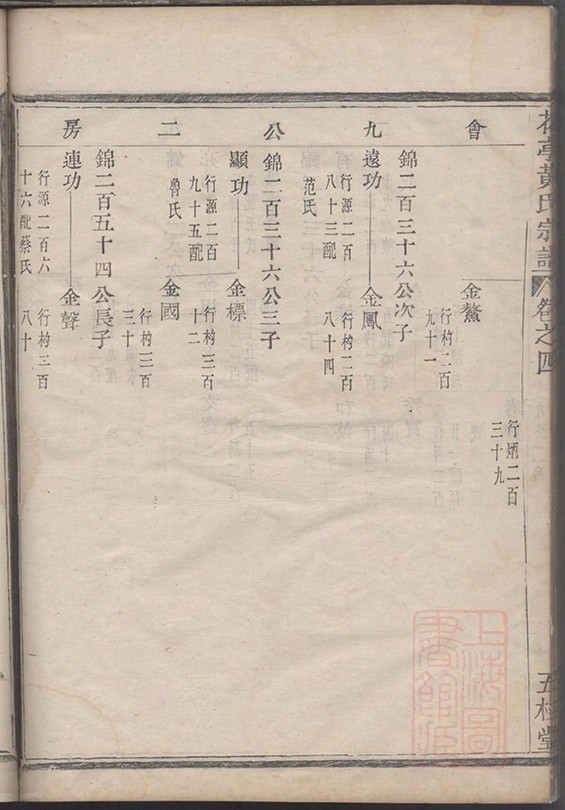 黃氏宗譜 卷之四 五桂堂
會
行炳二百
三十九
金鰲
行杓二百
九十一
錦二百三十六公次子
九
遠功 金鳳
行源二百
八十三配
范氏
行杓二百
八十四
公
錦二百三十六公三子
顯功 金標
行源二百
九十五配
魯氏
行杓三百
十二
二
金國
行杓三百
三十
錦二百五十四公長子
房
連功 金聲
行源二百六
十六配蔡氏
行杓三百
八十
上海圖
書館藏